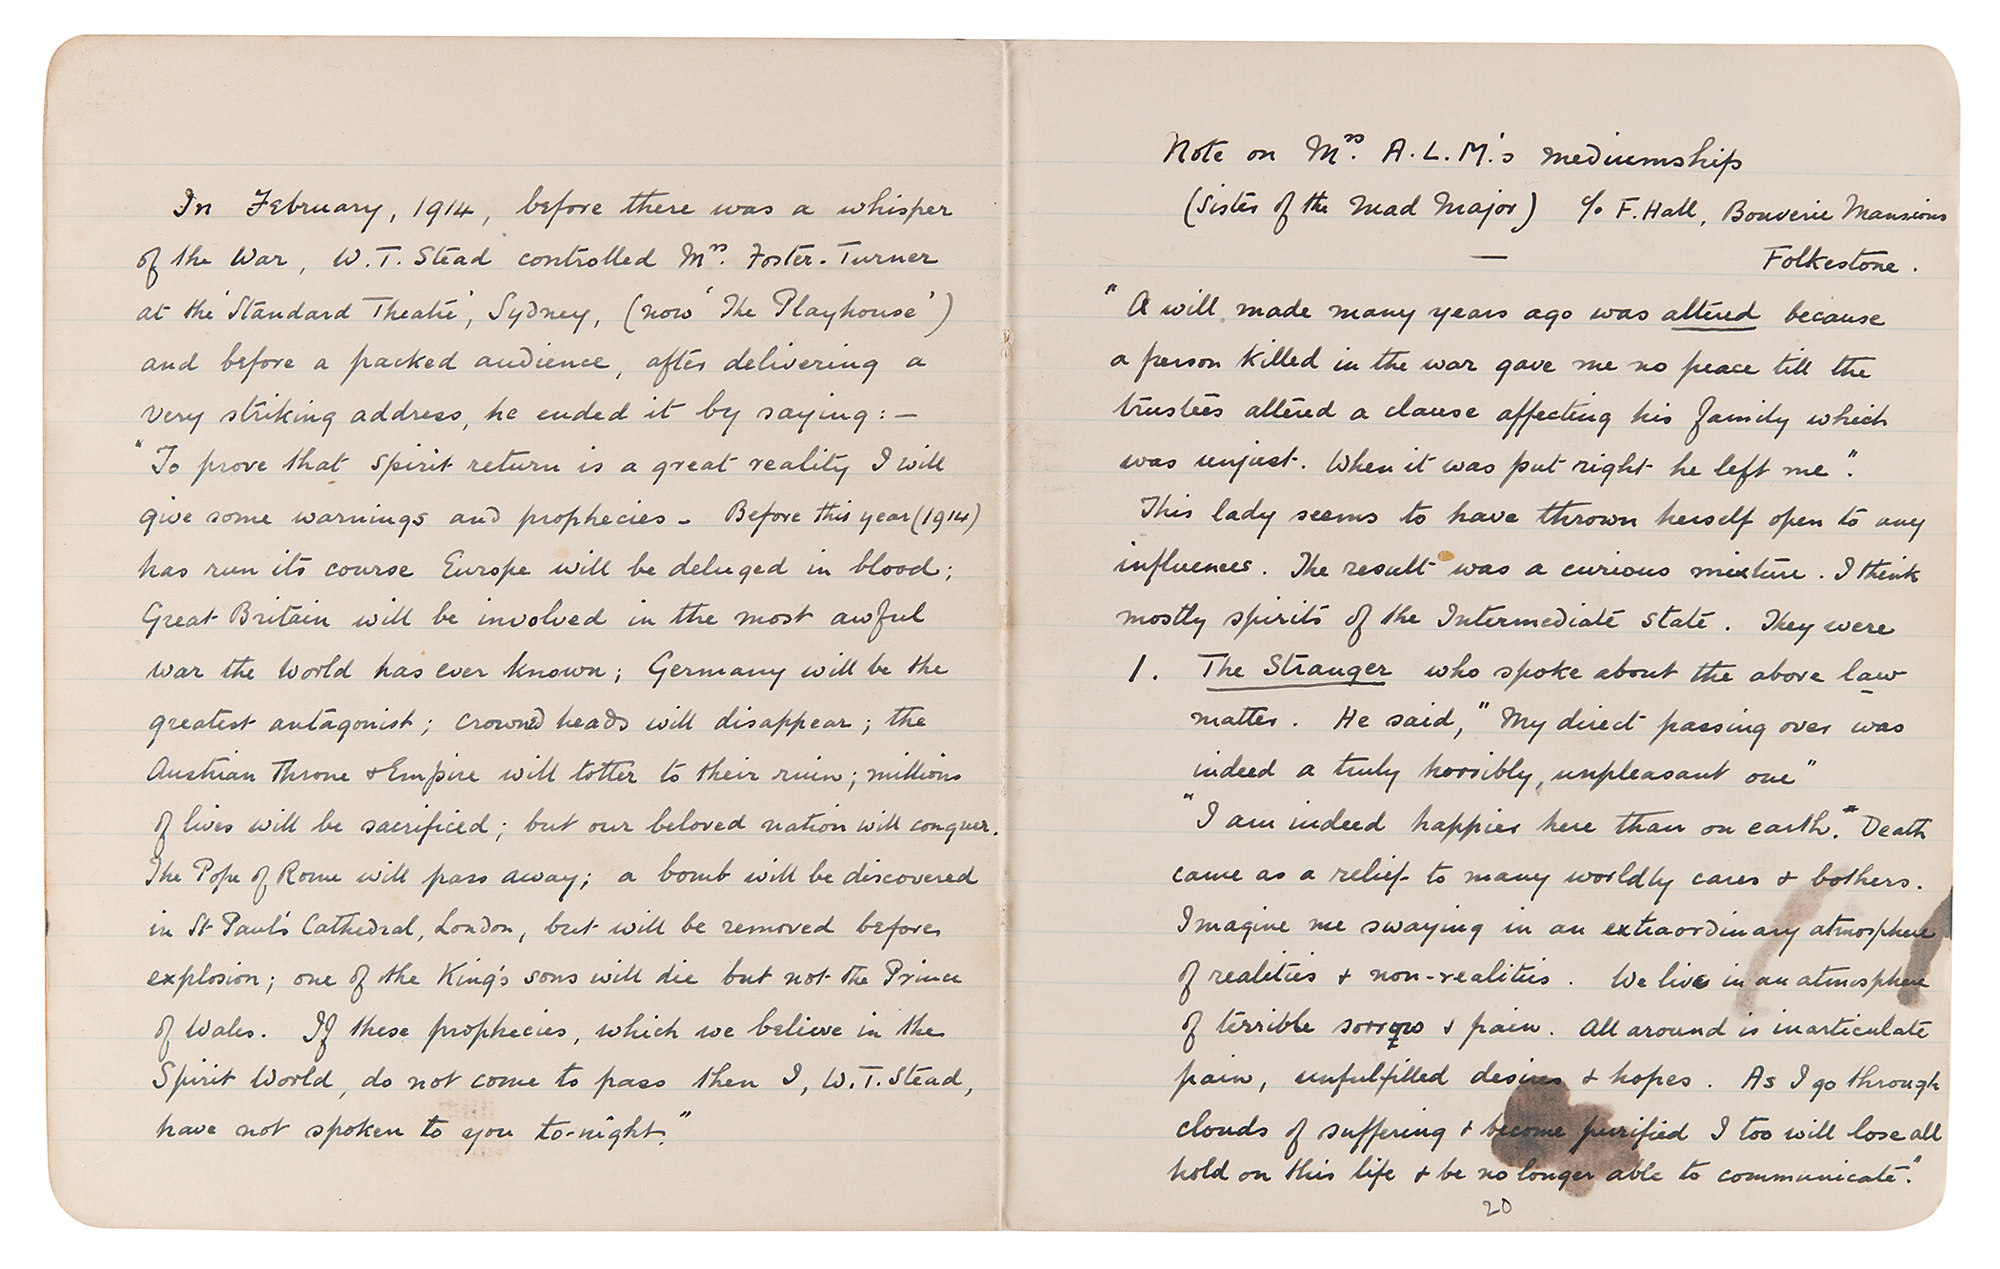 In February, 1914, before there was a whisper
of the War, W.T. Stead controlled Mrs. Foster-Turner
at the 'Standard Theatre', Sydney, (now 'The Playhouse')
and before a packed audience, after delivering a
very striking address, he ended it by saying:—
"To prove that spirit return is a great reality I will
give some warnings and prophecies - Before this year (1914)
has run its course Europe will be deluged in blood;
Great Britain will be involved in the most awful
war the World has ever known; Germany will be the
greatest antagonist; crowned heads will disappear; the
Austrian Throne & Empire will totter to their ruin; millions
of lives will be sacrificed; but our beloved nation will conquer.
The Pope of Rome will pass away; a bomb will be discovered
in St Paul's Cathedral, London, but will be removed before
explosion; one of the King's sons will die but not the Prince
of Wales. If these prophecies, which we believe in the
Spirit World, do not come to pass then I, W.T. Stead,
have not spoken to you to-night."
Note on Mrs. A.L.M.'s mediumship
(Sister of the Mad Major) c/o F. Hall, Bouverie Mansions
— Folkestone.
"A will made many years ago was altered because
a person killed in the war gave me no peace till the
trustees altered a clause affecting his family which
was unjust. When it was put right he left me".
This lady seems to have thrown herself open to any
influences. The result was a curious mixture. I think
mostly spirits of the Intermediate State. They were
1. The Stranger who spoke about the above law
matter. He said, "My direct passing over was
indeed a truly horribly, unpleasant one"
"I am indeed happier here than on earth." Death
came as a relief to many worldly cares & bothers.
Imagine me swaying in an extraordinary atmosphere
of realities & non-realities. We live in an atmosphere
of terrible sorrow & pain. All around is inarticulate
pain, unfulfilled desires & hopes. As I go through
clouds of suffering & become purified I too will lose all
hold on this life & be no longer able to communicate."
20